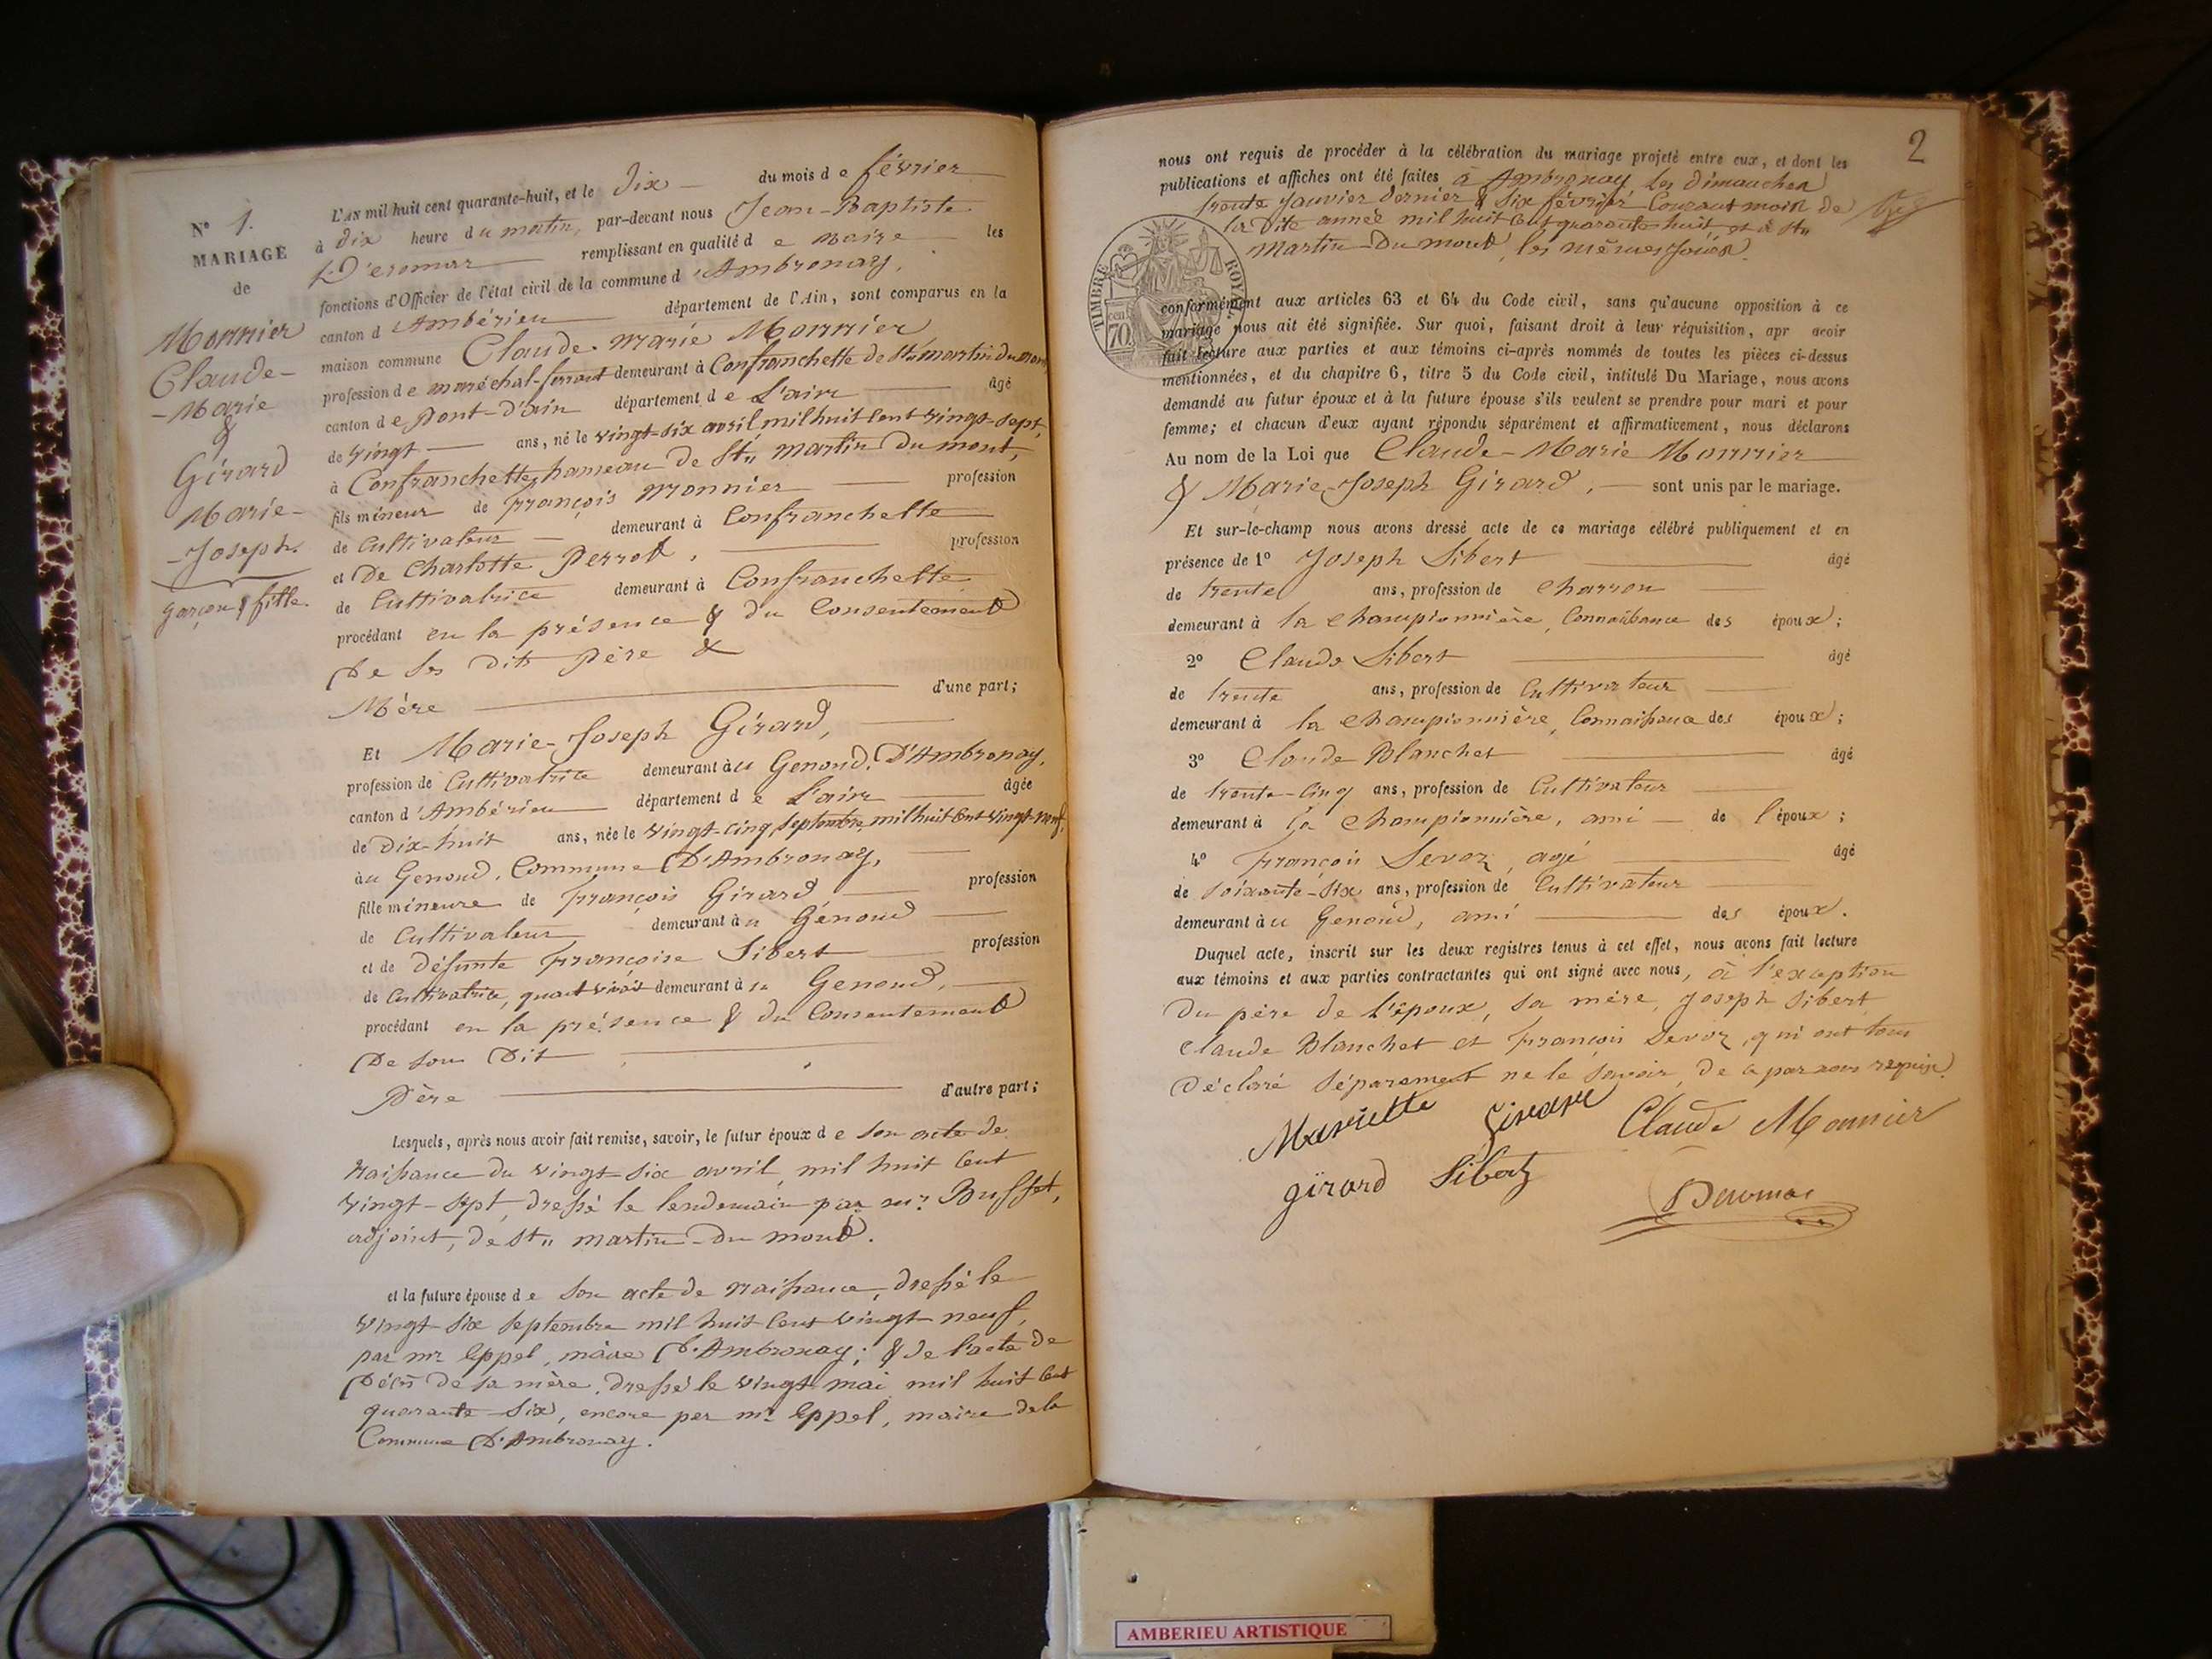 N° 1.
MARIAGE
de
Monnier
Claude-
-Marie
&
Girard
Marie-
-Joseph.
garçon & fille.
L'AN mil huit cent quarante-huit, et le dix du mois de février
à dix heure du matin, par-devant nous Jean-Baptiste
remplissant en qualité de maire les
fonctions d'Officier de l'état civil de la commune d'Ambronay,
canton d'Ambérieu département de l'Ain, sont comparus en la
maison commune Claude-Marie Monnier
profession de maréchal-ferrant demeurant à Confranchette de St. martin du mont
canton de Pont-d'ain département de L'ain âgé
de vingt ans, né le vingt-six avril mil huit cent vingt-sept,
à Confranchette, hameau de St. martin du mont,
fils mineur de François Monnier profession
de Cultivateur demeurant à Confranchette
et de Charlotte Perrot, profession
de Cultivatrice demeurant à Confranchette
procédant en la présence & du Consentement
de ses dits Père &
Mère d'une part;
Et Marie-Joseph Girard,
profession de Cultivatrice demeurant au Genoud, D'Ambronay,
canton d'Ambérieu département de L'ain âgée
de Dix-huit ans, née le vingt-cinq septembre mil huit cent vingt-neuf,
au Genoud, Commune D'Ambronay,
fille mineure de François Girard, profession
de Cultivateur demeurant au Génoud
et de défunte Françoise Sibert profession
de Cultivatrice, quand vivait demeurant au Genoud,
procédant en la présence & du Consentement
De son Dit
Père d'autre part;
Lesquels, après nous avoir fait remise, savoir, le futur époux de son acte de
naissance du vingt-six avril, mil huit cent
vingt-sept, dressé le lendemain par mr. Buffet,
adjoint, de St. martin-du mont.
et la future épouse de son acte de naissance, dressé le
vingt-six septembre mil huit cent vingt-neuf,
par mr Eppel, maire D'Ambronay; & de l'acte de
Décès de sa mère, dressé le vingt mai mil huit cent
quarante-six, encore par mr Eppel, maire de la
Commune D'Ambronay.
2
nous ont requis de procéder à la célébration du mariage projeté entre eux, et dont les
publications et affiches ont été faites à Ambronay, les dimanches
trente janvier dernier & six février courant mois de
la dite année mil huit cent quarante huit, et à St.
Martin-Du mont, les mêmes jours.
TIMBRE ROYAL
70 cen
conformément aux articles 63 et 64 du Code civil, sans qu'aucune opposition à ce
mariage nous ait été signifiée. Sur quoi, faisant droit à leur réquisition, apr avoir
fait lecture aux parties et aux témoins ci-après nommés de toutes les pièces ci-dessus
mentionnées, et du chapitre 6, titre 5 du Code civil, intitulé Du Mariage, nous avons
demandé au futur époux et à la future épouse s'ils veulent se prendre pour mari et pour
femme; et chacun d'eux ayant répondu séparément et affirmativement, nous déclarons
Au nom de la Loi que Claude-Marie Monnier
& Marie-Joseph Girard, sont unis par le mariage.
Et sur-le-champ nous avons dressé acte de ce mariage célébré publiquement et en
présence de 1° Joseph Sibert âgé
de trente ans, profession de Charron
demeurant à la Championnière, Connaissance des époux;
2° Claude Sibert âgé
de trente ans, profession de Cultivateur
demeurant à la Championnière, Connaissance des époux;
3° Claude Blanchet âgé
de trente-cinq ans, profession de Cultivateur
demeurant à la Championnière, ami de l'époux;
4° François Levoz, agé âgé
de soixante-six ans, profession de Cultivateur
demeurant au Genoud, ami des époux.
Duquel acte, inscrit sur les deux registres tenus à cet effet, nous avons fait lecture
aux témoins et aux parties contractantes qui ont signé avec nous, à l'exception
Du père de l'époux, sa mère, Joseph Sibert
Claude Blanchet et François Levoz, qui ont tous
Déclaré séparément ne le savoir, de ce par nous requis.
Mariette Girard Claude Monnier
girard Sibert
AMBERIEU ARTISTIQUE